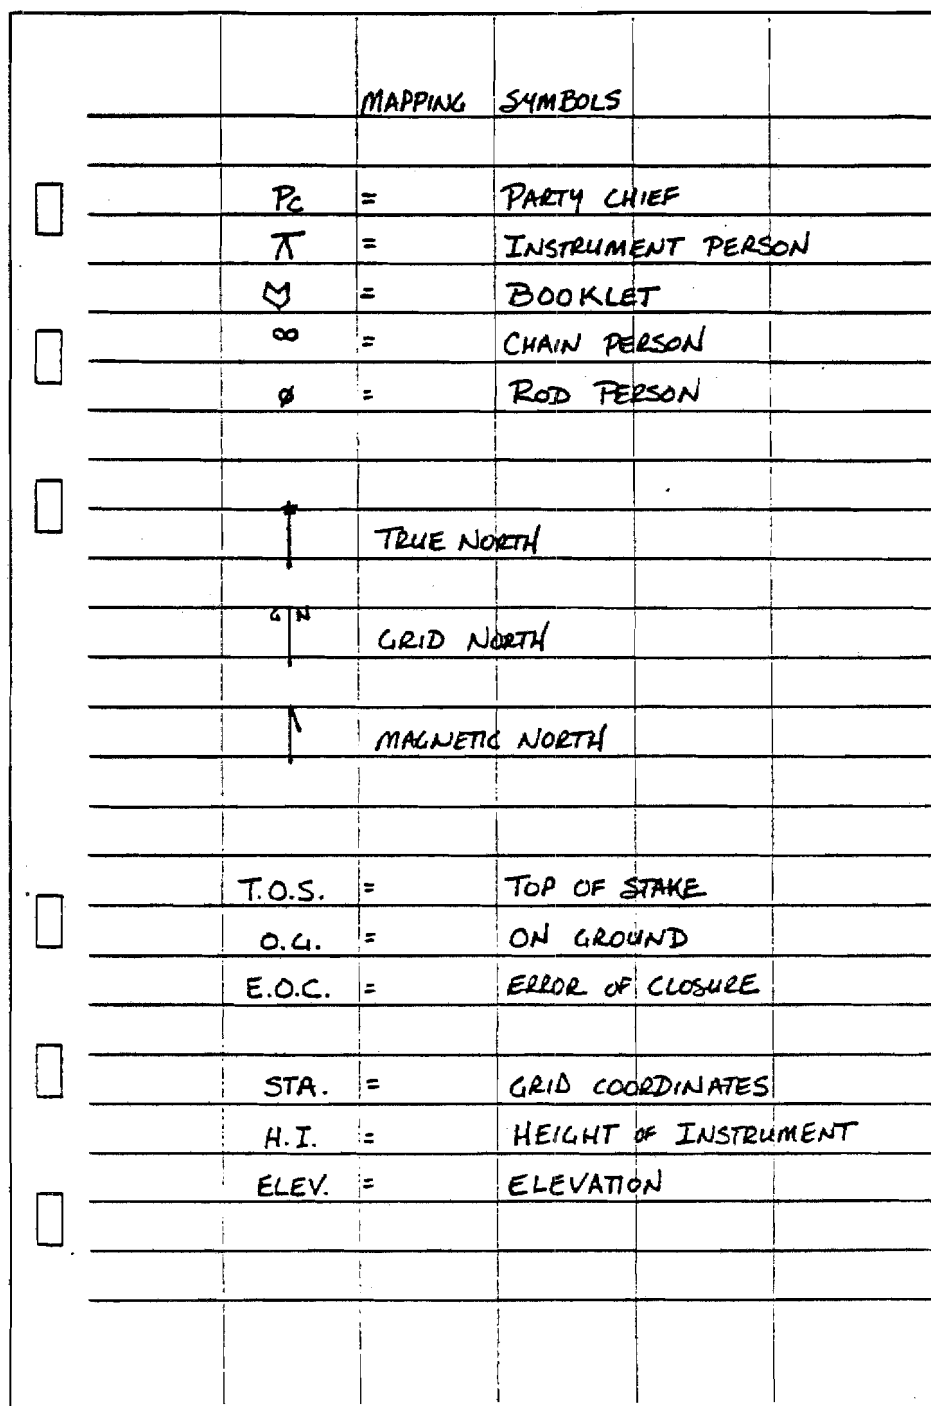 MAPPING SYMBOLS
Pc = PARTY CHIEF
⊼ = INSTRUMENT PERSON
= BOOKLET
∞ = CHAIN PERSON
ø = ROD PERSON
TRUE NORTH
G N
GRID NORTH
MAGNETIC NORTH
T.O.S. = TOP OF STAKE
O.G. = ON GROUND
E.O.C. = ERROR OF CLOSURE
STA. = GRID COORDINATES
H.I. = HEIGHT OF INSTRUMENT
ELEV. = ELEVATION